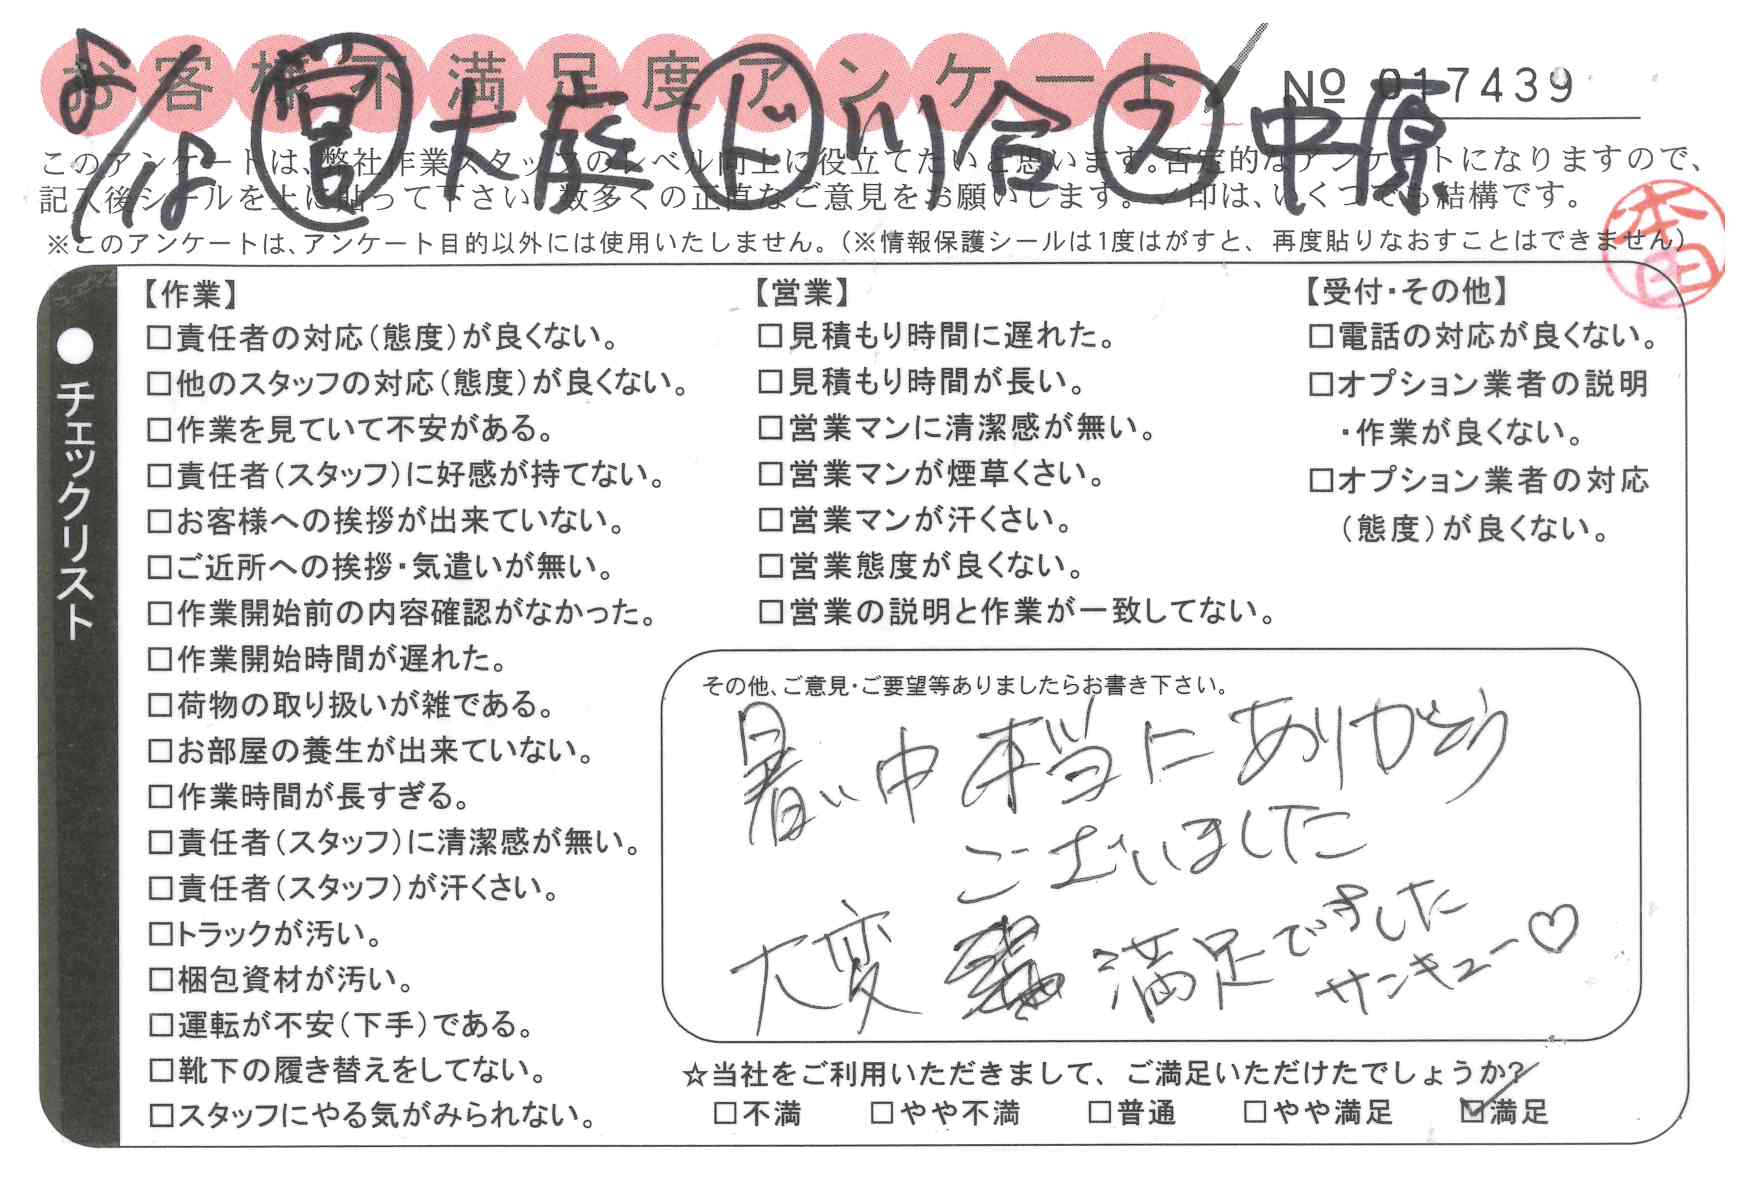 お客様不満足度アンケート
№ 017439
営 大庭 ド 川合 ス 中原
このアンケートは、弊社作業スタッフのレベル向上に役立てたいと思います。否定的なアンケートになりますので、
記入後シールを上に貼って下さい。数多くの正直なご意見をお願いします。✓印は、いくつでも結構です。
※このアンケートは、アンケート目的以外には使用いたしません。(※情報保護シールは1度はがすと、再度貼りなおすことはできません)
●チェックリスト
【作業】
□責任者の対応(態度)が良くない。
□他のスタッフの対応(態度)が良くない。
□作業を見ていて不安がある。
□責任者(スタッフ)に好感が持てない。
□お客様への挨拶が出来ていない。
□ご近所への挨拶・気遣いが無い。
□作業開始前の内容確認がなかった。
□作業開始時間が遅れた。
□荷物の取り扱いが雑である。
□お部屋の養生が出来ていない。
□作業時間が長すぎる。
□責任者(スタッフ)に清潔感が無い。
□責任者(スタッフ)が汗くさい。
□トラックが汚い。
□梱包資材が汚い。
□運転が不安(下手)である。
□靴下の履き替えをしてない。
□スタッフにやる気がみられない。
【営業】
□見積もり時間に遅れた。
□見積もり時間が長い。
□営業マンに清潔感が無い。
□営業マンが煙草くさい。
□営業マンが汗くさい。
□営業態度が良くない。
□営業の説明と作業が一致してない。
【受付・その他】
□電話の対応が良くない。
□オプション業者の説明
・作業が良くない。
□オプション業者の対応
(態度)が良くない。
その他、ご意見・ご要望等ありましたらお書き下さい。
暑い中本当にありがとう
ございました
大変 満足できました
サンキュー♡
☆当社をご利用いただきまして、ご満足いただけたでしょうか?
□不満 □やや不満 □普通 □やや満足 ☑満足